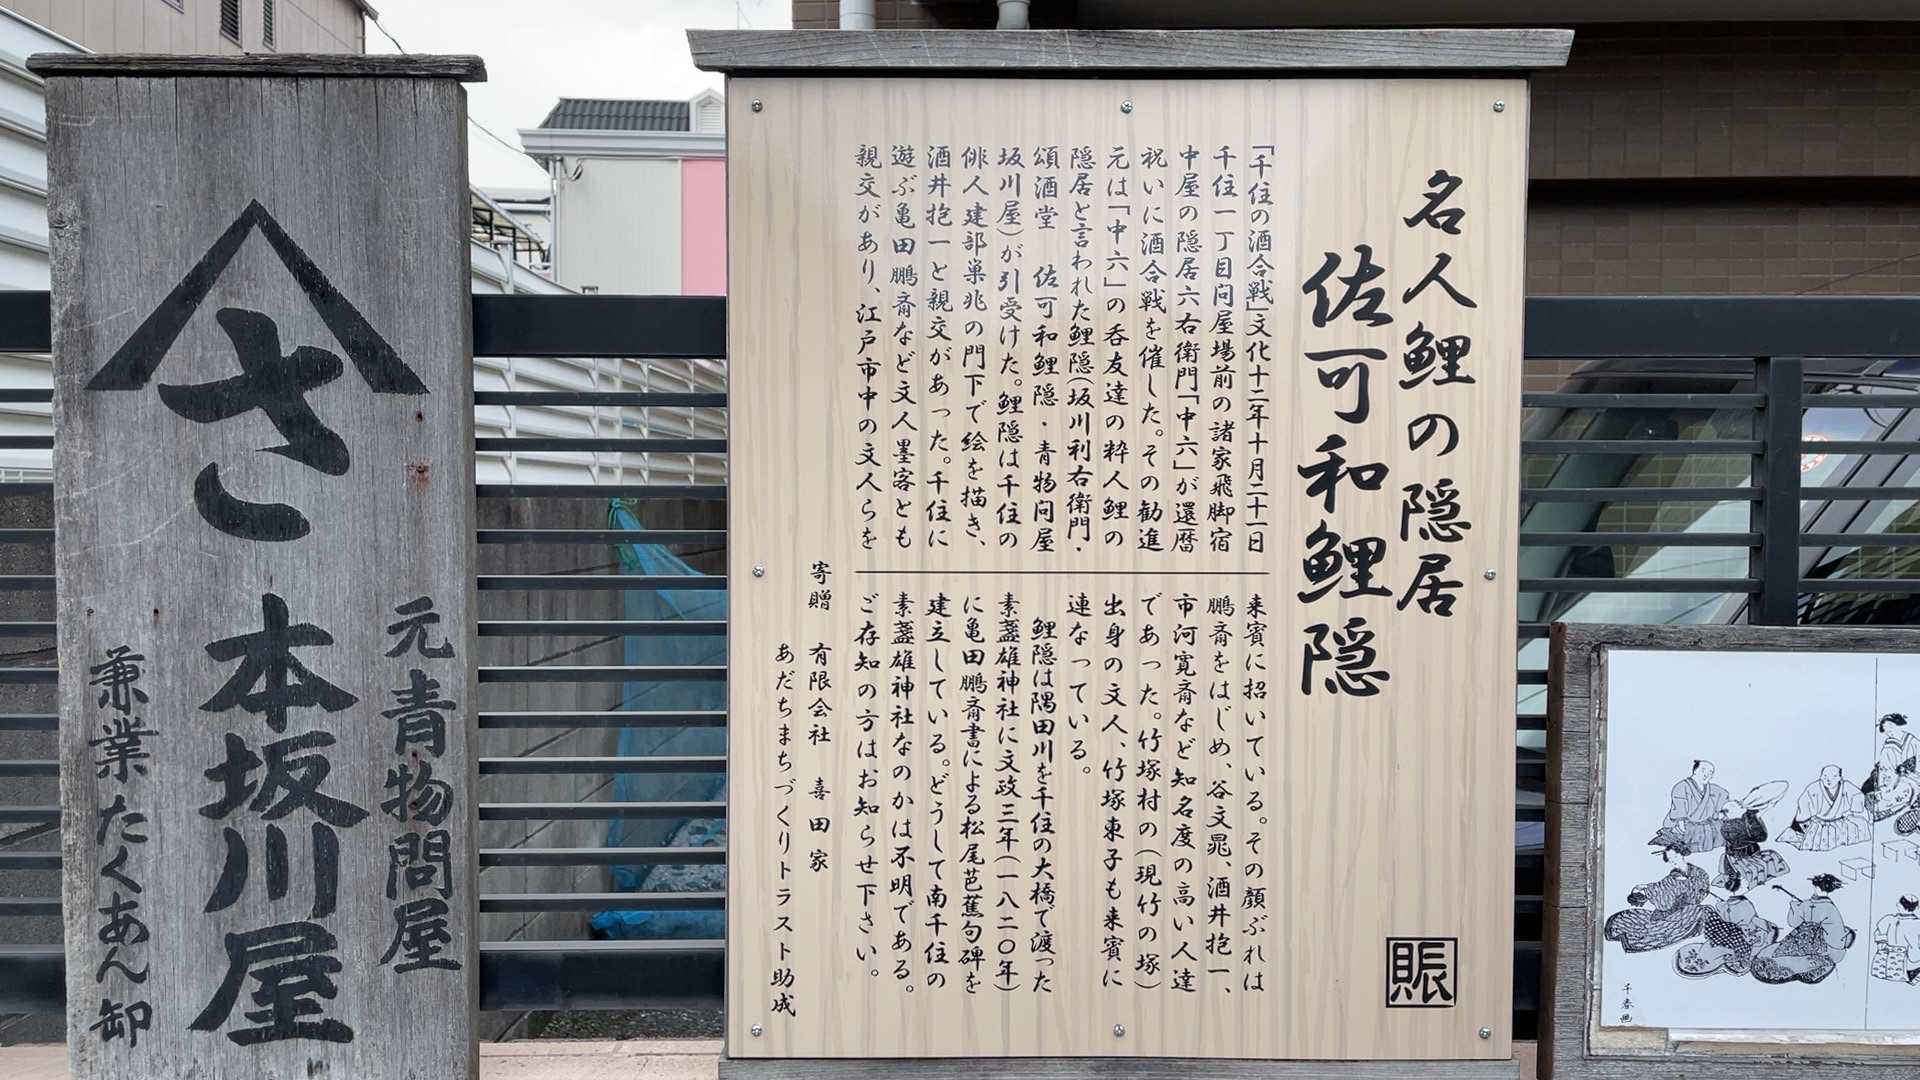 名人鯉の隠居
佐可和鯉隠
「千住の酒合戦」文化十二年十月二十一日
千住一丁目問屋場前の諸家飛脚宿
中屋の隠居六右衛門「中六」が還暦
祝いに酒合戦を催した。その勧進
元は「中六」の呑友達の粋人鯉の
隠居と言われた鯉隠(坂川利右衛門・
頌酒堂 佐可和鯉隠・青物問屋
坂川屋)が引受けた。鯉隠は千住の
俳人建部巣兆の門下で絵を描き、
酒井抱一と親交があった。千住に
遊ぶ亀田鵬斎など文人墨客とも
親交があり、江戸市中の文人らを
来賓に招いている。その顔ぶれは
鵬斎をはじめ、谷文晁、酒井抱一、
市河寛斎など知名度の高い人達
であった。竹塚村の(現竹の塚)
出身の文人、竹塚東子も来賓に
連なっている。
鯉隠は隅田川を千住の大橋で渡った
素盞雄神社に文政三年(一八二〇年)
に亀田鵬斎書による松尾芭蕉句碑を
建立している。どうして南千住の
素盞雄神社なのかは不明である。
ご存知の方はお知らせ下さい。
寄贈 有限会社 喜田家
あだちまちづくりトラスト助成
賑
元青物問屋
さ 本坂川屋
兼業たくあん卸
千春画